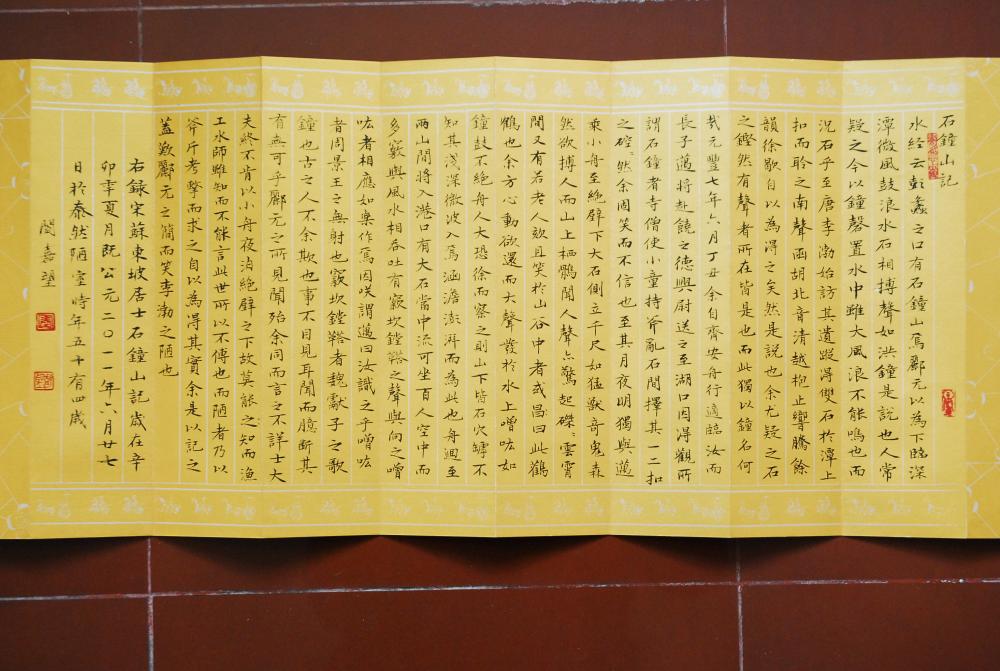 石鐘山記
水经云彭蠡之口有石鐘山焉酈元以為下臨深
潭微風鼓浪水石相搏聲如洪鐘是說也人常
疑之今以鐘磬置水中雖大風浪不能鳴也而
況石乎至唐李渤始訪其遺蹤得雙石於潭上
扣而聆之南聲函胡北音清越枹止響騰餘
韻徐歇自以為得之矣然是說也余尤疑之石
之鏗然有聲者所在皆是也而此獨以鐘名何
哉元豐七年六月丁丑余自齊安舟行適臨汝而
長子邁將赴饒之德興尉送之至湖口因得觀所
謂石鐘者寺僧使小童持斧亂石間擇其一二扣
之硿〻然余固笑而不信也至其月夜明獨與邁
乘小舟至絕壁下大石側立千尺如猛獸奇鬼森
然欲搏人而山上栖鶻聞人聲亦驚起磔〻雲霄
間又有若老人欬且笑於山谷中者或曰此鸛
鶴也余方心動欲還而大聲發於水上噌吰如
鐘鼓不絕舟人大恐徐而察之則山下皆石穴罅不
知其淺深微波入焉涵澹澎湃而為此也舟迴至
兩山間將入港口有大石當中流可坐百人空中而
多竅與風水相吞吐有窾坎鏜鞳之聲與向之噌
吰者相應如樂作焉因笑謂邁曰汝識之乎噌吰
者周景王之無射也窾坎鏜鞳者魏獻子之歌
鐘也古之人不余欺也事不目見耳聞而臆斷其
有無可乎酈元之所見聞殆余同而言之不詳士大
夫終不肯以小舟夜泊絕壁之下故莫能之知而漁
工水師雖知而不能言此世所以不傳也而陋者乃以
斧斤考擊而求之自以為得其實余是以記之
蓋歎酈元之簡而笑李渤之陋也
右錄宋蘇東坡居士石鐘山記歲在辛
卯季夏月既公元二〇一一年六月廿七
日於泰然陋室時年五十有四歲
閔嘉望